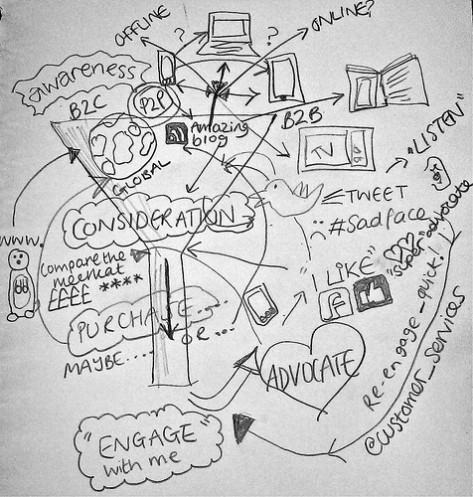 OFFLINE
ONLINE?
?
?
awareness
B2C
P2P
B2B
Amazing
blog
TV
GLOBAL
"LISTEN"
TWEET
#Sadface
CONSIDERATION
www.
Compare the
meerkat
££££ ****
"LIKE"
f
"super" advocate
PURCHASE....
OR...
MAYBE....
ADVOCATE
Re-engage_quick!
@customer_services
"ENGAGE"
with me